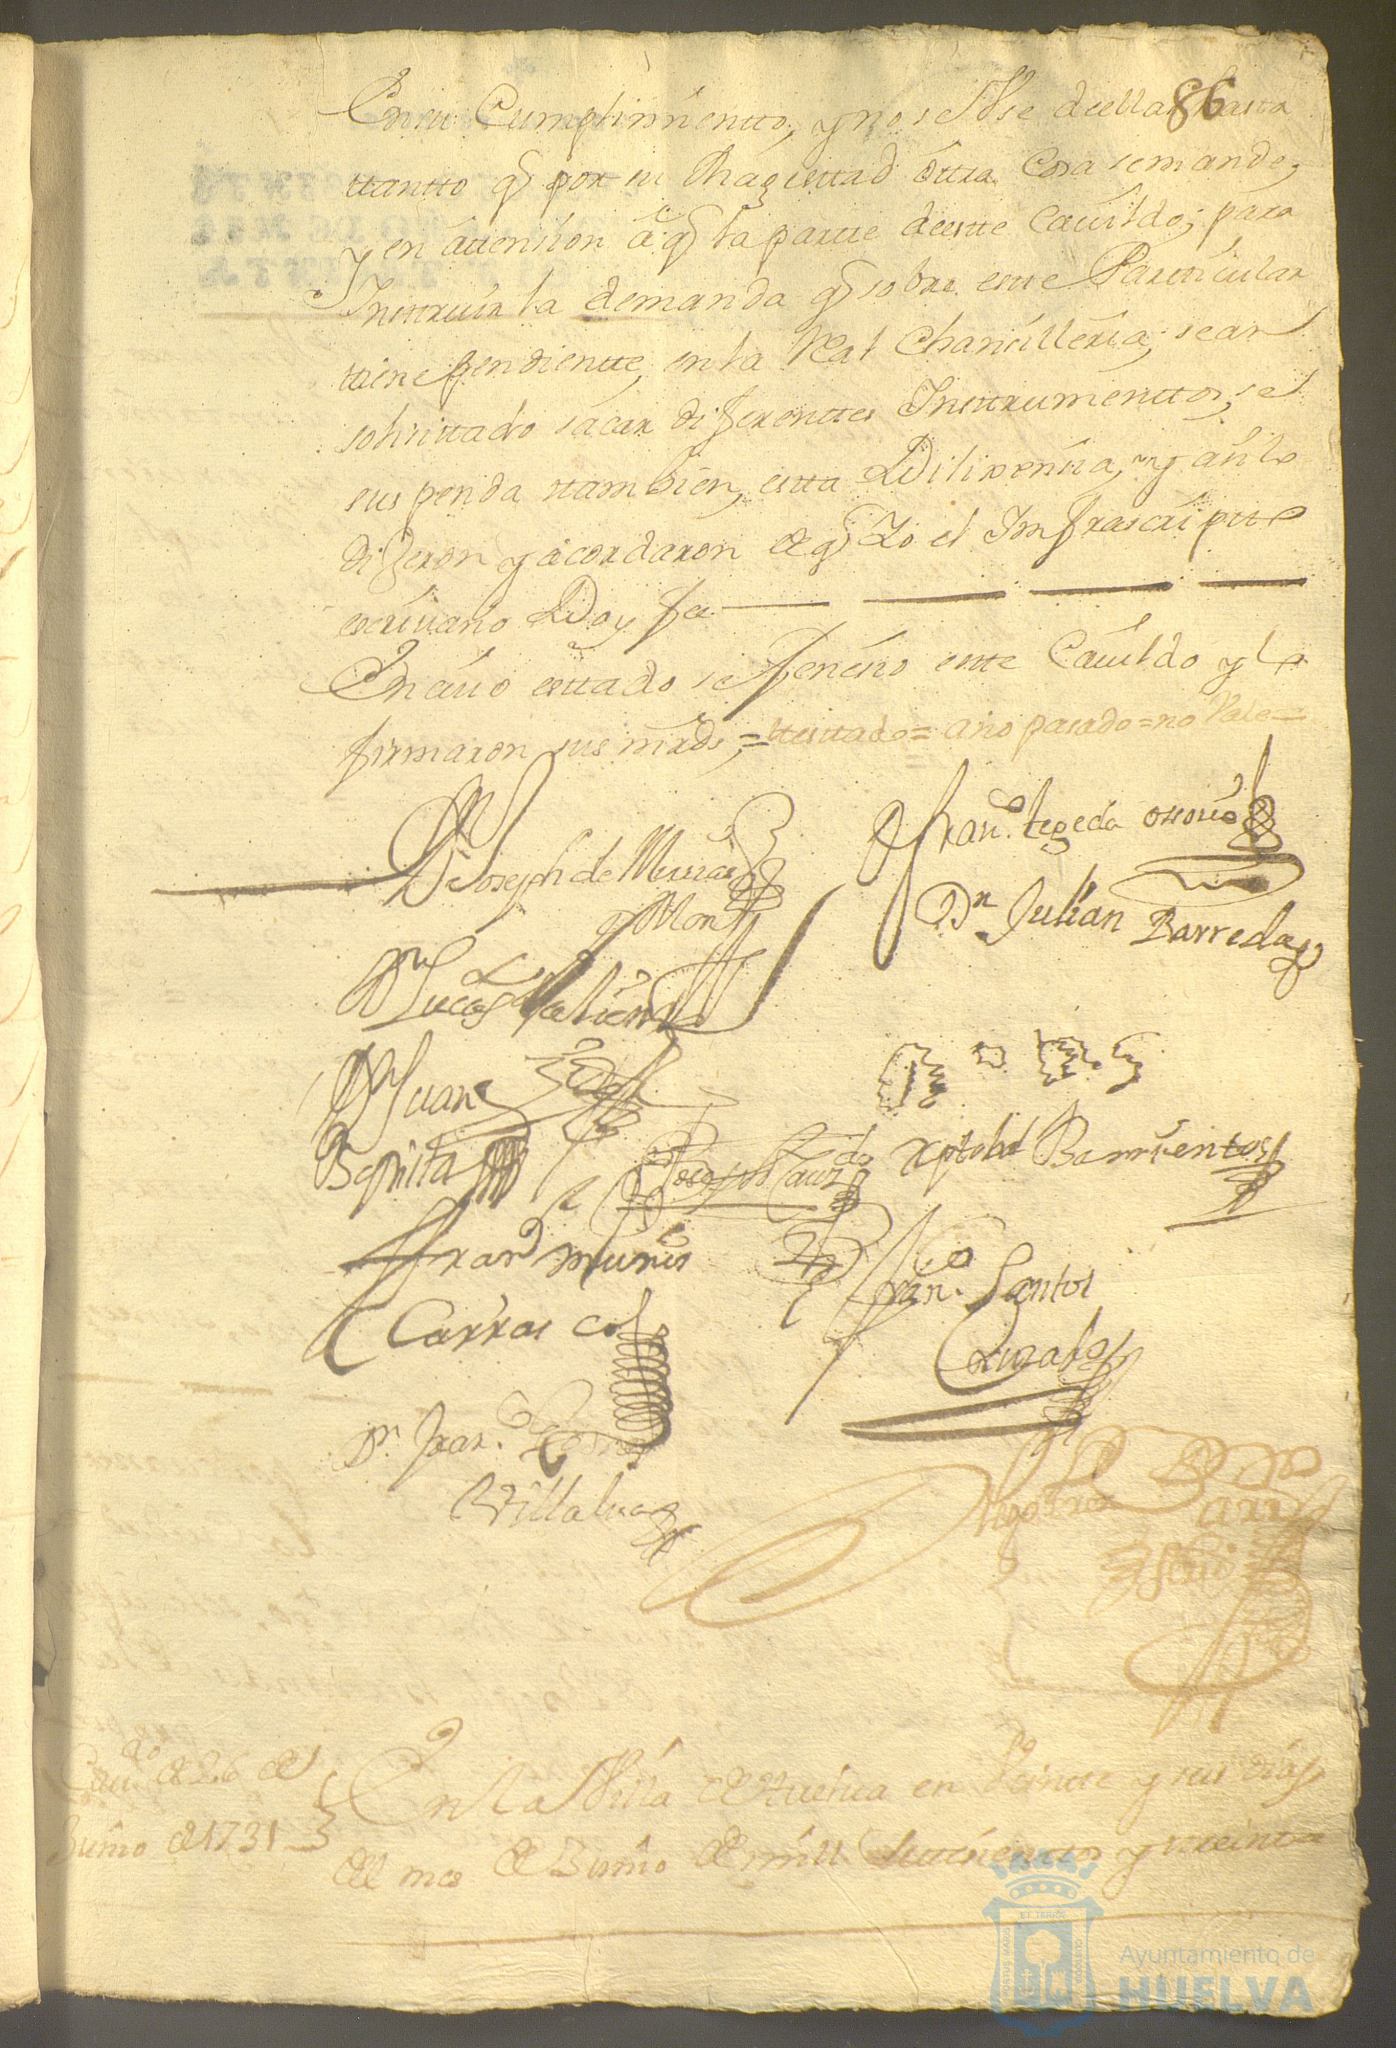 86
En su Cumplimientto, y no se Vse de ellas hasta
ttantto q por su Magesttad ôttra Cosa se mande,
y en âttension â q la partte de estte Cauildo, para
Ynsttruir la demanda q sobre estte Partticular
tiene pendientte, en la Real Chansilleria, se an
solisittado sacar diferenttes Ynsttrumenttos, se
suspenda ttambien, estta Dilixensia, y asi lo
dijeron y acordaron de q Yo el Imfrascriptto
escriuano Doy fe
En cuio esttado se feneсio estte Cauildo y lo
firmaron sus mrds, = ttesttado = año pasado = no Vale =
Dn Joseph de
y Mon
Fran.co tegeda ossorio
Dn Julian Barreda
Dn Lucas
Dn Juan
Xptobal Barrientos
Franco Munis
Carrasco
Fran.co Santos
Dn Fran.co
Villalua
Diego
Caudo de 26 de
Junio de 1731
En la Villa de Huelua en Veintte y seis dias
del mes de Junio de mill settesienttos y treintta
Ayuntamiento de
HUELVA